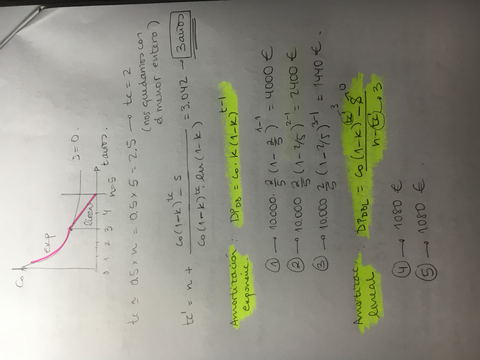 Co
exp
lineal
S=0.
0 1 2 3 4 n=5 p. tauros.
tc ≤ 0.5 × n = 0.5 × 5 = 2.5 → tc = 2
(nos quedamos con
el menor entero)
tc' = n + Co(1-k)^tc - S / Co(1-k)^tc · ln(1-k) = 3.042 → 3 años
Amortización
exponenc. : DPDDL = Co · k(1-k)^t-1
① → 10.000 · 2/5 (1-2/5)^1-1 = 4000 €
② → 10.000 2/5 (1-2/5)^2-1 = 2400 €
③ → 10.000 2/5 (1-2/5)^3-1 = 1440 €.
Amortizac.
lineal : DPDDL = Co(1-k)^tc' - S / n-tc'
3
0
3
④ → 1080 €
⑤ → 1080 €